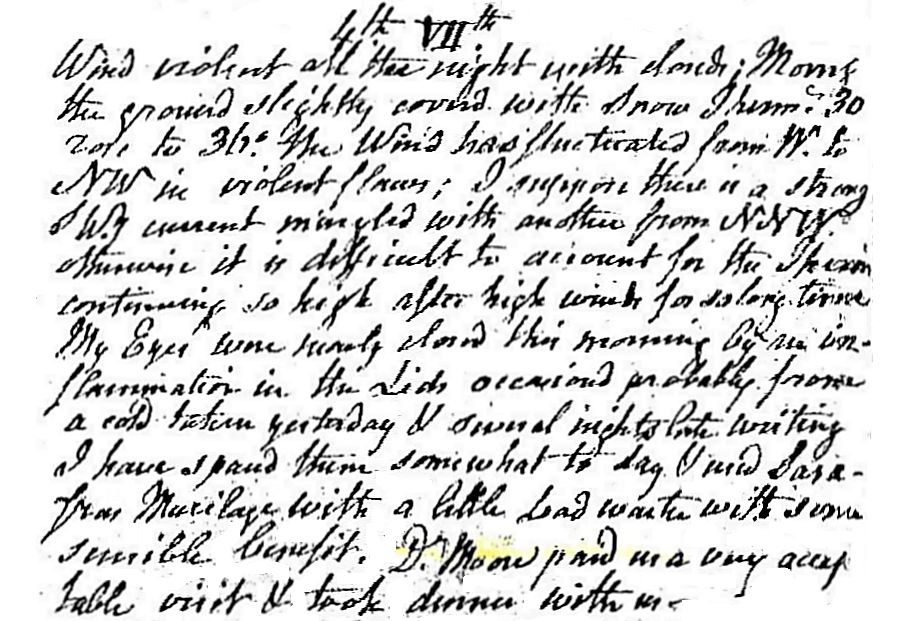 4th VIIth
Wind violent all the night with clouds; Morng
the ground slightly coverd with snow Thermr. 30
rose to 36°. The Wind has fluctuated from W. to
NW in violent flaws; I suppose there is a strong
SWy current mingled with another from NNW.
otherwise it is difficult to account for the Therm
continuing so high after high winds for so long time
My Eyes were nearly closed this morning by an in-
flammation in the Lids occasiond probably from
a cold taken yesterday & several nights late writing
I have spared them somewhat to day & used Sasa-
fras Mucilage with a little Lead water with some
sensible benefit. Dr. Moore paid us a very accep
table visit & took dinner with us-